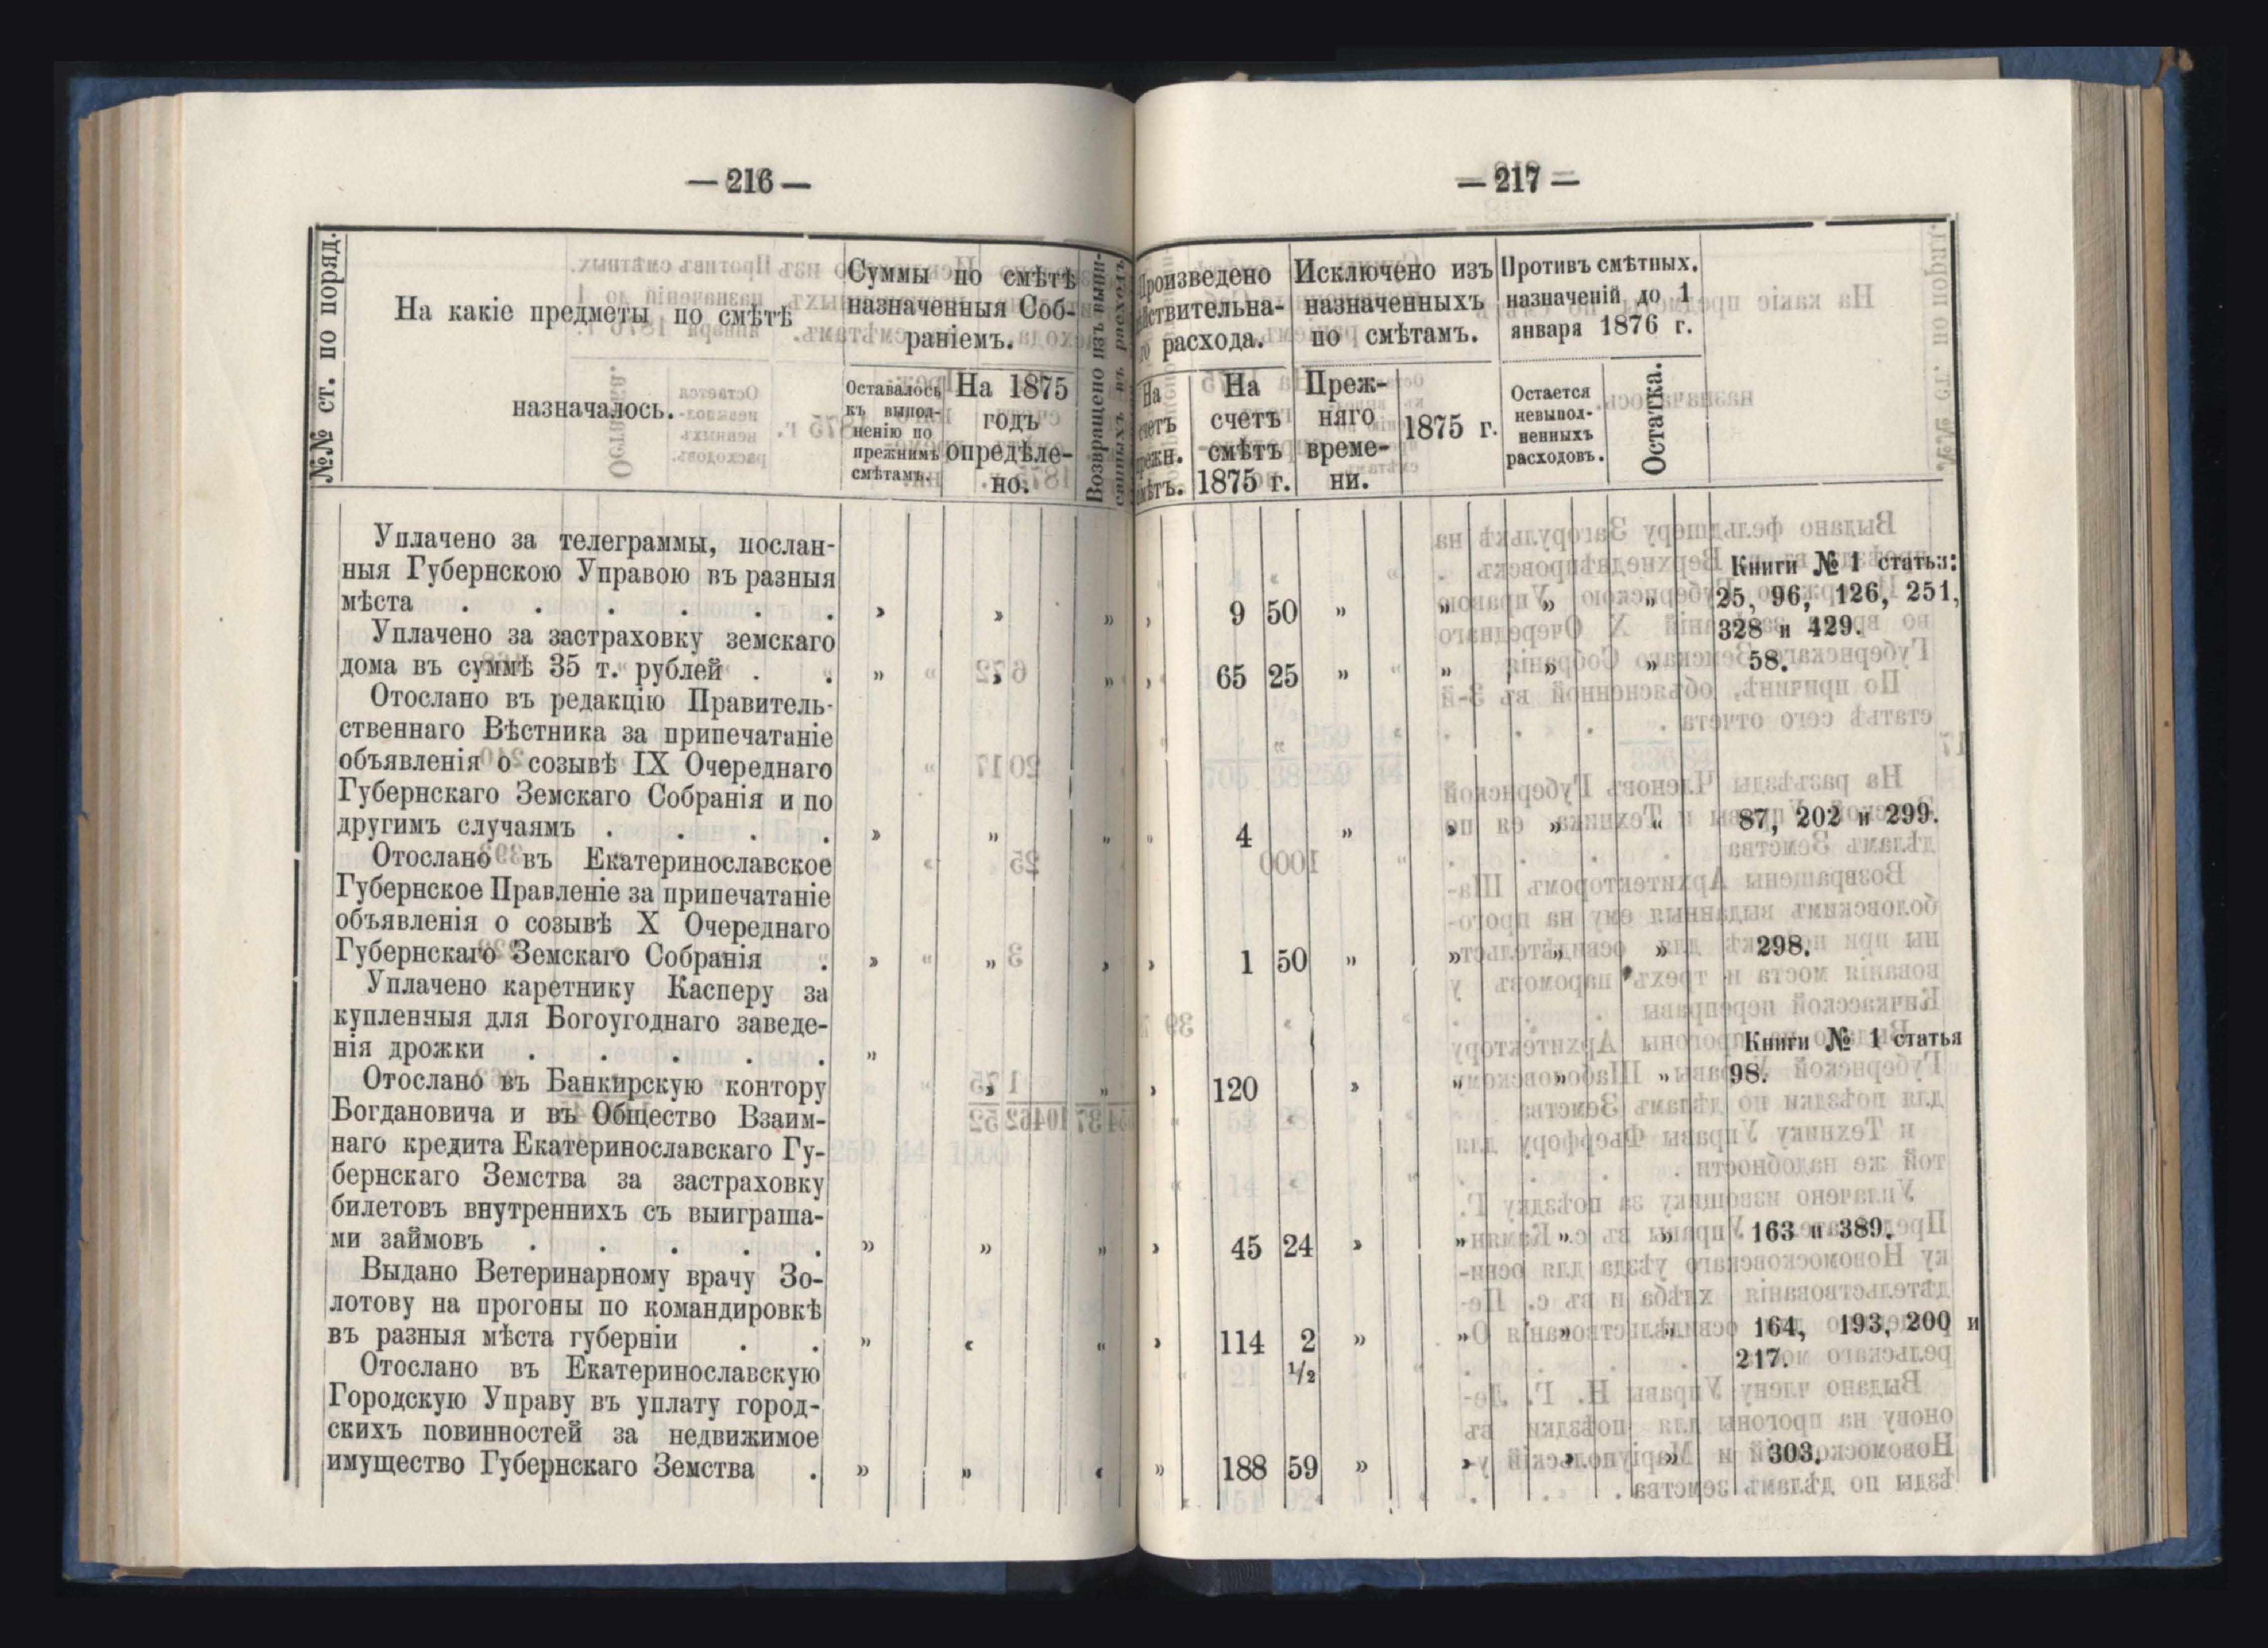 — 216 —
№№ ст. по поряд.
На какіе предметы по смѣтѣ
назначалось.
Суммы по смѣтѣ
назначенныя Соб-
раніемъ.
Оставалось
къ выпол-
ненію по
прежнимъ
смѣтамъ.
На 1875
годъ
опредѣле-
но.
Возвращено изъ выпи-
санныхъ въ расходъ.
Уплачено за телеграммы, послан-
ныя Губернскою Управою въ разныя
мѣста . . . . . . » » »
Уплачено за застраховку земскаго
дома въ суммѣ 35 т. рублей . . » » »
Отослано въ редакцію Правитель-
ственнаго Вѣстника за припечатаніе
объявленія о созывѣ IX Очереднаго
Губернскаго Земскаго Собранія и по
другимъ случаямъ . . . . » „ „
Отослано въ Екатеринославское
Губернское Правленіе за припечатаніе
объявленія о созывѣ X Очереднаго
Губернскаго Земскаго Собранія . » „ »
Уплачено каретнику Касперу за
купленныя для Богоугоднаго заведе-
нія дрожки . . . . . „ „ „
Отослано въ Банкирскую контору
Богдановича и въ Общество Взаим-
наго кредита Екатеринославскаго Гу-
бернскаго Земства за застраховку
билетовъ внутреннихъ съ выиграша-
ми займовъ . . . . . » » »
Выдано Ветеринарному врачу Зо-
лотову на прогоны по командировкѣ
въ разныя мѣста губерніи . . » « «
Отослано въ Екатеринославскую
Городскую Управу въ уплату город-
скихъ повинностей за недвижимое
имущество Губернскаго Земства . » » «
— 217 —
Произведено
дѣйствительна-
го расхода.
На
счетъ
прежн.
смѣтъ.
На
счетъ
смѣтъ
1875 г.
Исключено изъ
назначенныхъ
по смѣтамъ.
Преж-
няго
време-
ни.
1875 г.
Противъ смѣтных.
назначеній до 1
января 1876 г.
Остается
невыпол-
ненныхъ
расходовъ.
Остатка.
Книги № 1 статьи:
» 9 50 » „ » » 25, 96, 126, 251,
328 и 429.
» 65 25 » „ » » 58.
„ 4 » » » « 87, 202 и 299.
» 1 50 » » „ » 298.
Книги № 1 статья
» 120 » „ » „ 98.
» 45 24 » „ „ » 163 и 389.
» 114 2 » „ » „ 164, 193, 200 и
½ 217.
» 188 59 » » » » 303.